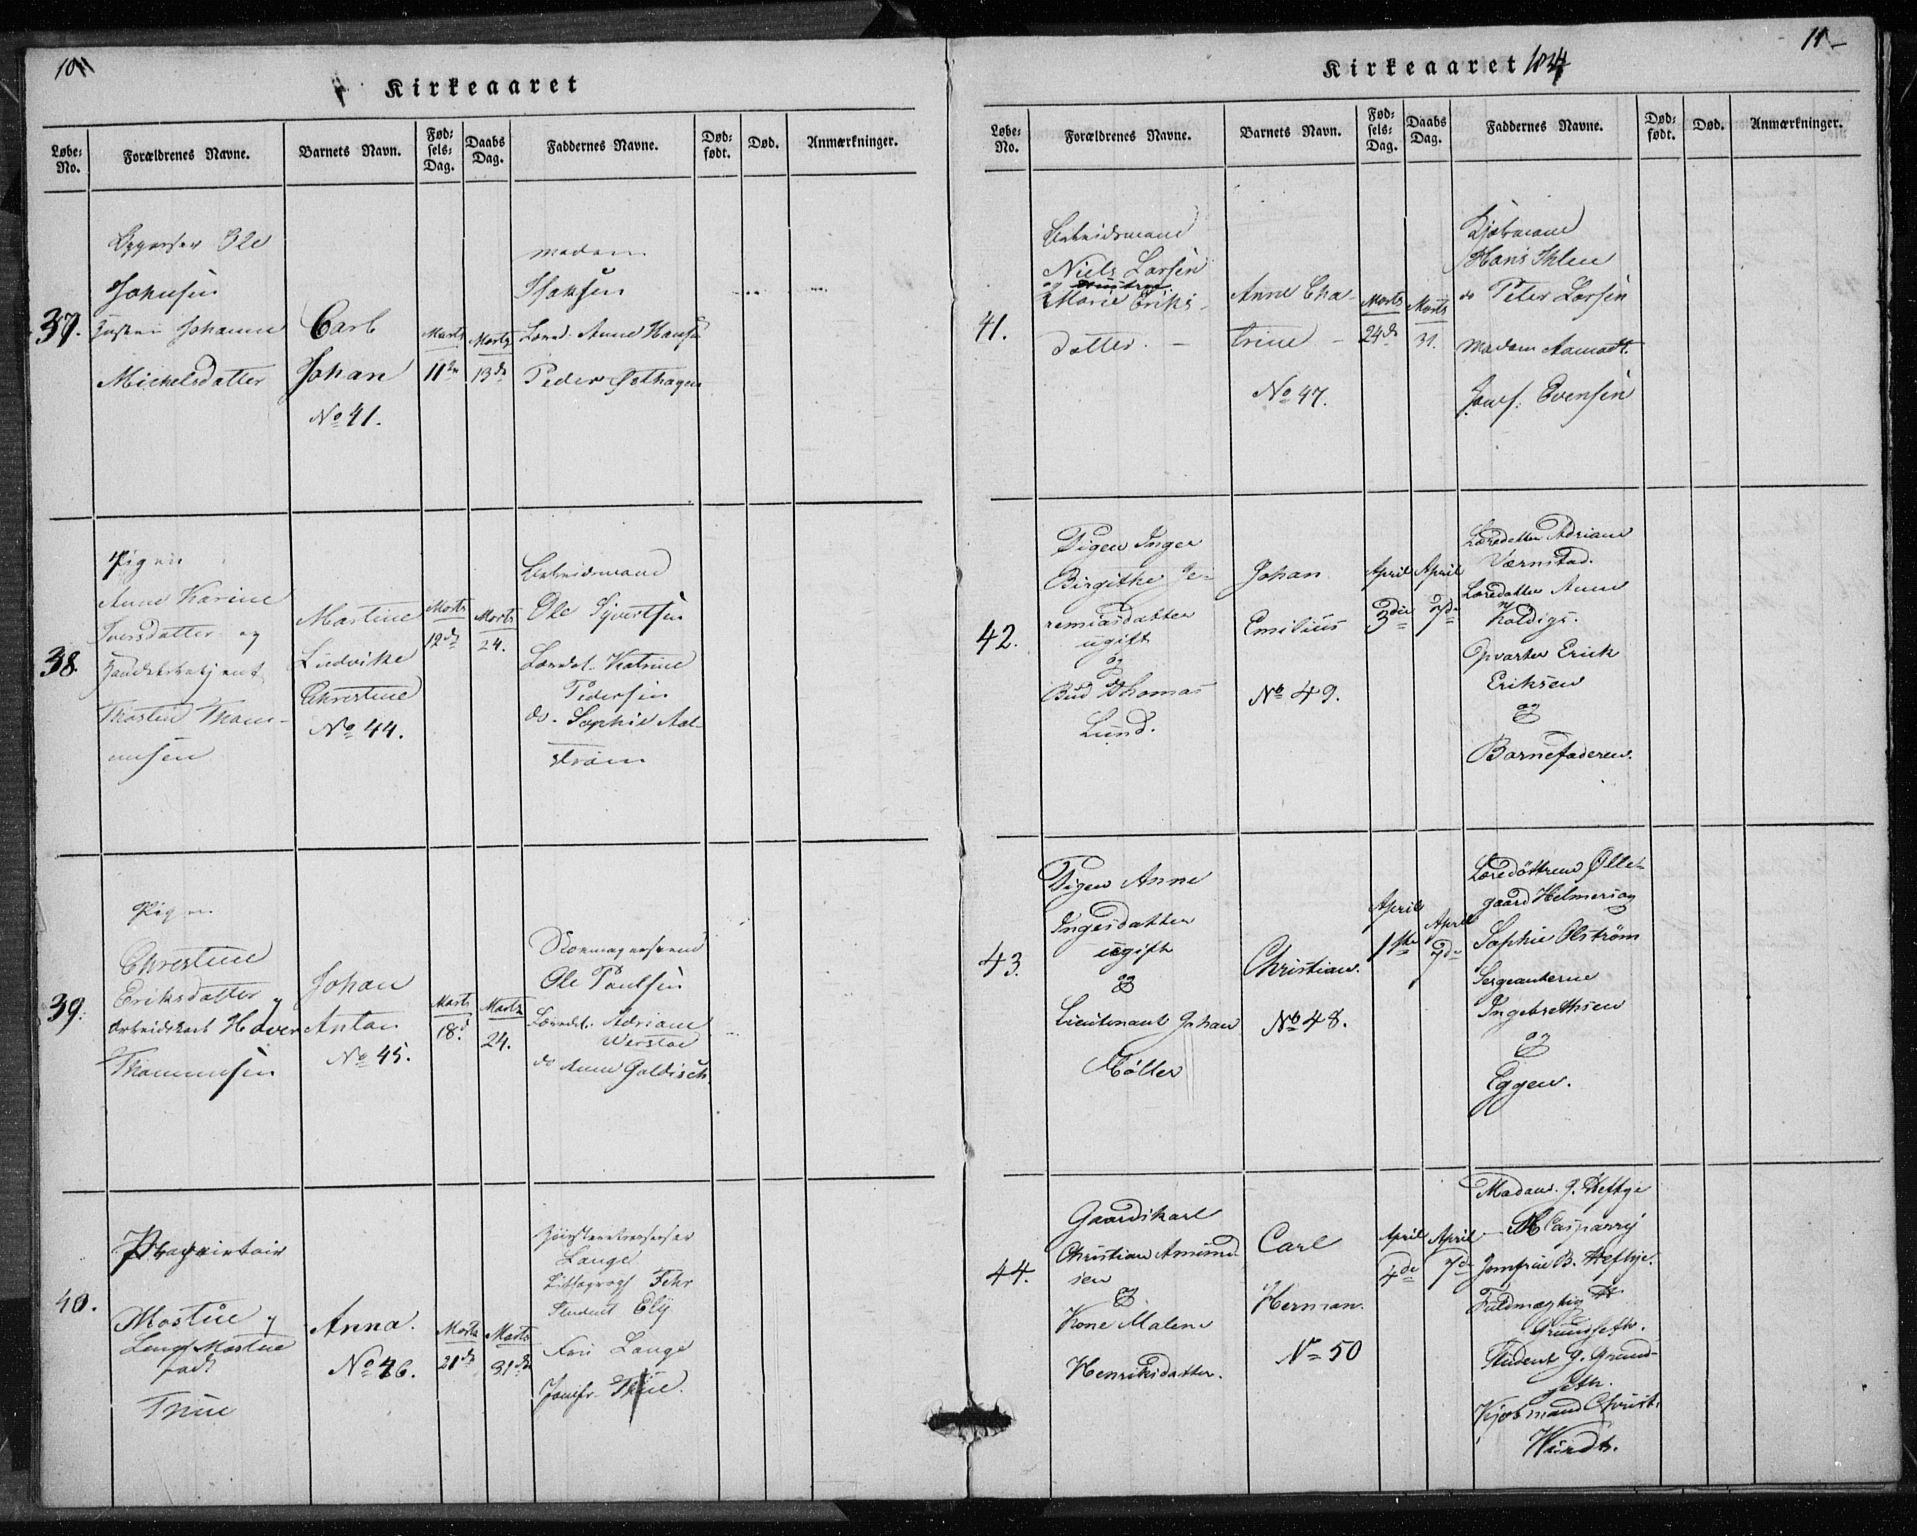 10
Kirkeaaret
Løbe-No.
Forældrenes Navne.
Barnets Navn.
Fødsels-Dag.
Daabs Dag.
Faddernes Navne.
Dødfødt.
Død.
Anmærkninger.
37.
Ole
Johnsen
Johanne
Michelsdatter
Carl
Johan
No 41.
Marts
11te
Marts
13de
Madam
Isaksen
Anne Hansen
Peder Østhagen
38.
Pigen
Anne Karine
Iversdatter og
Thosten Thom-
mesen
Martine
Ludvikke
Christine
No 44.
Marts
12de
Marts
24.
Arbeidsmand
Ole Syvertsen
Katrine
Pedersen
do. Sophie Aal-
strøm
39.
Pigen
Christine
Eriksdatter og
Arbeidskarl Halver
Thommesen
Johan
Anton
No 45.
Marts
18d
Marts
24.
Skomagersvend
Ole Paulsen
Adriane
Werstad
do Anne Goldisch
40.
Mostue og
Mostue
født
True
Anna.
No 46.
Marts
21de
Marts
31de
Lange
Lithograph Fehr
Student Ely
Lange
Jomfr. True.
11
Kirkeaaret 1834
Løbe-No.
Forældrenes Navne.
Barnets Navn.
Fødsels-Dag.
Daabs Dag.
Faddernes Navne.
Dødfødt.
Død.
Anmærkninger.
41.
Arbeidsmand
Niels Larsen
og Hustrue
Marie Eriks-
datter. -
Anne Cha-
trine -
No 47.
Marts
24de
Marts
31.
Kjøbmand
Hans Ihlen
do Peter Larsen
Madam Aamodt.
Jomf: Evensen
42.
Pigen Inger
Birgithe Je-
remiasdatter
ugift
og
Bud Thomas
Lund.
Johan
Emilius
No 49.
April
3die
April
7de
Læredatter Adriane
Værnstad.
Læredatter Anne
Koldigs.
Opvarter Erick
Eriksen
og
Barnefaderen.
43.
Pigen Anne
Ingesdatter
ugift
og
Lieutenant Johan
Møller
Christian.
No 48.
April
1ste
April
7de
Læredøttrene Olle-
gaard Helmers og
Sophie Olstrøm
Sergeanterne
Ingebrethsen
og
Eggen.
44.
Gaardskarl
Christian Amund-
sen
og
Kone Malene
Henriksdatter.
Carl
Herman.
No 50
April
4de
April
7de
Madam. J. Heftye
Casparry
Jomfrue B. Heftye.
Fuldmægtig
Grundseth.
Student J. Grund-
seth.
Kjøbmand Christ.
Hundt.